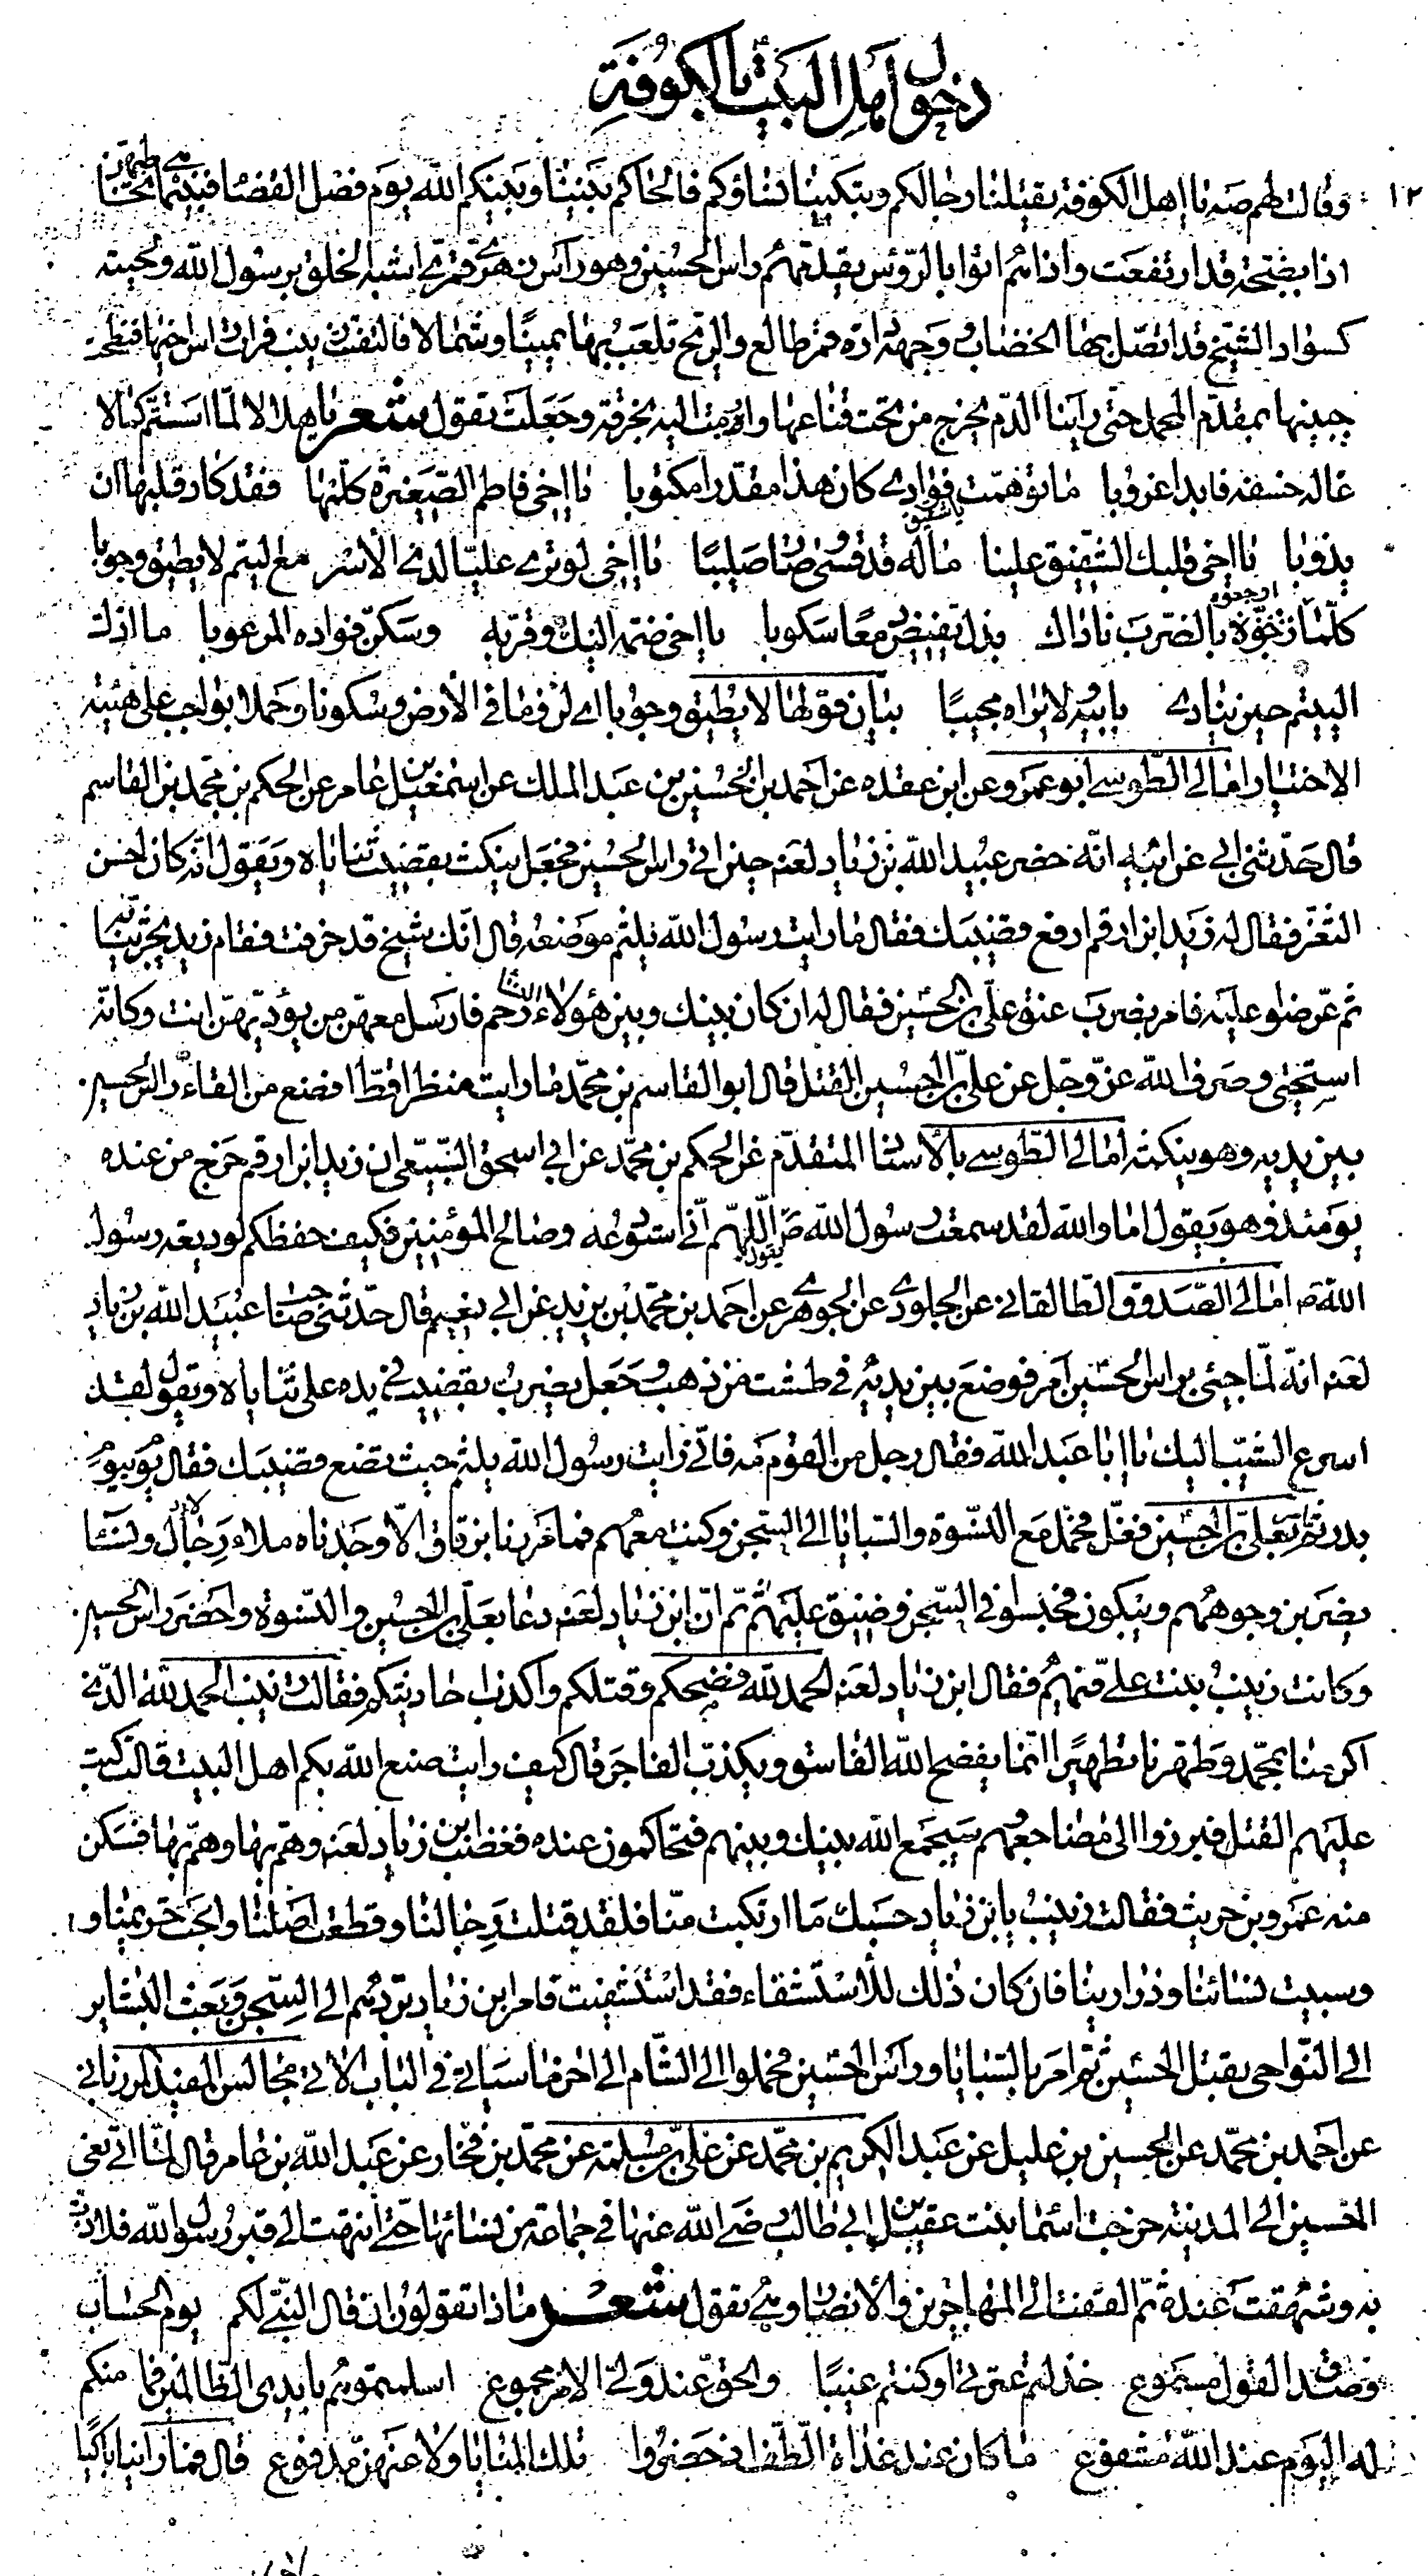 دخول أهل البيت بالكوفة
وقالت لهم صه يا اهل الكوفة يقتلنا رجالكم وتبكينا نساؤكم فالحاكم بيننا وبينكم الله يوم فصل القضا فبينما هي تخاطبهن ١٢
اذا بضجة قد ارتفعت واذا هم اتوا بالرؤس يقدمهم راس الحسين وهو راس زهري قمري اشبه الخلق برسول الله ولحيته
كسواد السبج قد اتصل بها الخضاب ووجهه دارة قمر طالع والريح تلعب بها يمينا وشمالا فالتفتت زينب فرات راس اخيها فنطحت
جبينها بمقدم المحمل حتى راينا الدم يخرج من تحت قناعها واومت اليه بخرقة وجعلت تقول شعر يا هلالا لما استتم كمالا
غاله خسفه فابدا غروبا ما توهمت يا شقيق فؤادي كان هذا مقدرا مكتوبا يا اخي فاطم الصغيرة كلمها فقد كاد قلبها ان
يذوبا يا اخي قلبك الشفيق علينا ما له قد قسى وصار صليبا يا اخي لو ترى عليا لدى الاسر مع اليتم لا يطيق وجوبا
كلما اوجعوه بالضرب ناداك بذل يفيض دمعا سكوبا يا اخي ضمه اليك وقربه وسكن فؤاده المرعوبا ما اذل
اليتيم حين ينادي بابيه ولا يراه مجيبا بيان قولها لا يطيق وجوبا اي لزوما في الارض وسكونا وحمل ابو لهب على هيئة
الاختيار امالي الطوسي ابو عمرو عن ابن عقدة عن احمد بن الحسين بن عبد الملك عن اسمعيل بن عامر عن الحكم بن محمد بن القاسم
قال حدثني ابي عن ابيه انه حضر عبيد الله بن زياد لعنه حين اتي راس الحسين فجعل ينكت بقضيب ثناياه ويقول انه كان لحسن
الثغر فقال له زيد ابن ارقم ارفع قضيبك فقال ما رايت رسول الله يلثم موضعه قال انك شيخ قد خرفت فقام زيد يجر ثيابه
ثم عرضوا عليه فامر بضرب عنق علي بن الحسين فقال له ان كان بينك وبين هؤلاء النساء رحم فارسل معهن من يؤديهن انت وكانه
استحيى وصرف الله عز وجل عن علي بن الحسين القتل قال ابو القاسم بن محمد ما رايت منظرا قط افضع من القاء راس الحسين
بين يديه وهو ينكته امالي الطوسي بالاسناد المتقدم عن الحكم بن محمد عن ابي اسحق السبيعي ان زيد ابن ارقم خرج من عنده
يومئذ وهو يقول اما والله لقد سمعت رسول الله ص يقول اللهم اني استودعكه وصالح المؤمنين فكيف حفظكم لوديعة رسول
الله ص امالي الصدوق الطالقاني عن الجلودي عن الجوهري عن احمد بن محمد بن يزيد عن ابي نعيم قال حدثني حاجب عبيد الله بن زياد
لعنه انه لما جيئ براس الحسين امر فوضع بين يديه في طشت من ذهب وجعل يضرب بقضيب في يده على ثناياه ويقول لقد
اسرع الشيب اليك يا ابا عبد الله فقال رجل من القوم مه فاني رايت رسول الله يلثم حيث تضع قضيبك فقال يوم بيوم
بدر ثم امر بعلي بن الحسين فغل وحمل مع النسوة والسبايا الى السجن وكنت معهم فما مررنا بزقاق الا وجدناه ملاء رجال ونساء
يضربن وجوههم ويبكون فحبسوا في السجن وضيق عليهم ثم ان ابن زياد لعنه دعا بعلي بن الحسين والنسوة واحضر راس الحسين
وكانت زينب بنت علي فيهم فقال ابن زياد لعنه الحمد لله الذي فضحكم وقتلكم واكذب احاديثكم فقالت زينب الحمد لله الذي
اكرمنا بمحمد وطهرنا تطهيرا انما يفضح الله الفاسق ويكذب الفاجر قال كيف رايت صنع الله بكم اهل البيت قالت كتب
عليهم القتل فبرزوا الى مضاجعهم وسيجمع الله بينك وبينهم فتتحاكمون عنده فغضب ابن زياد لعنه وهم بها وهم بها فسكن
منه عمرو بن حريث فقالت زينب يا بن زياد حسبك ما ارتكبت منا فلقد قتلت رجالنا وقطعت اصلنا وابحت حريمنا و
وسبيت نسائنا وذرارينا فان كان ذلك للاستشفاء فقد استشفيت فامر ابن زياد بردهم الى السجن وبعث البشاير
الى النواحي بقتل الحسين ثم امر بالسبايا وراس الحسين فحملوا الى الشام الى اخر ما سياتي في الباب الاتي مجالس المفيد المرزباني
عن احمد بن محمد عن الحسين بن عليل عن عبد الكريم بن محمد عن علي بن سلمة عن محمد بن فخار عن عبد الله بن عامر قال لما اتى نعي
الحسين الى المدينة خرجت اسما بنت عقيل بن ابي طالب رضي الله عنها في جماعة من نسائها حتى انتهت الى قبر رسول الله فلاذت
به وشهقت عنده ثم التفتت الى المهاجرين والانصار وهي تقول شعر ماذا تقولون ان قال النبي لكم يوم الحساب
وصدق القول مسموع خذلتم عترتي او كنتم غيبا والحق عند ولي الامر مجموع اسلمتموهم بايدي الظالمين فما منكم
له اليوم عند الله مشفوع ما كان عند غداة الطف اذ حضروا تلك المنايا ولا عنهن مدفوع قال فما راينا باكيا